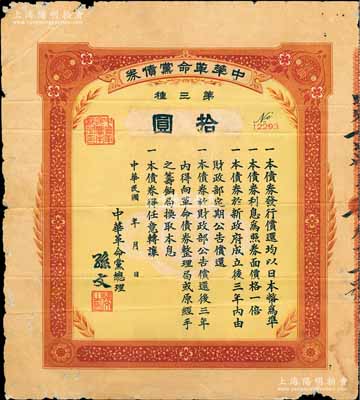 上海陽明拍賣
中華革命黨債券
第三種
拾圓
No 12293
一本債券發行償還均以日本幣爲準
一本債券利息爲照券面價格一倍
一本債券於新政府成立後三年內由
財政部定期公告償還
一本債券於財政部公告償還後三年
內得向革命債券整理局或原經手
之籌餉局換取本息
一本債券得任意轉讓
中華民國 年 月 日
中華革命黨總理
孫文
上海陽明拍賣